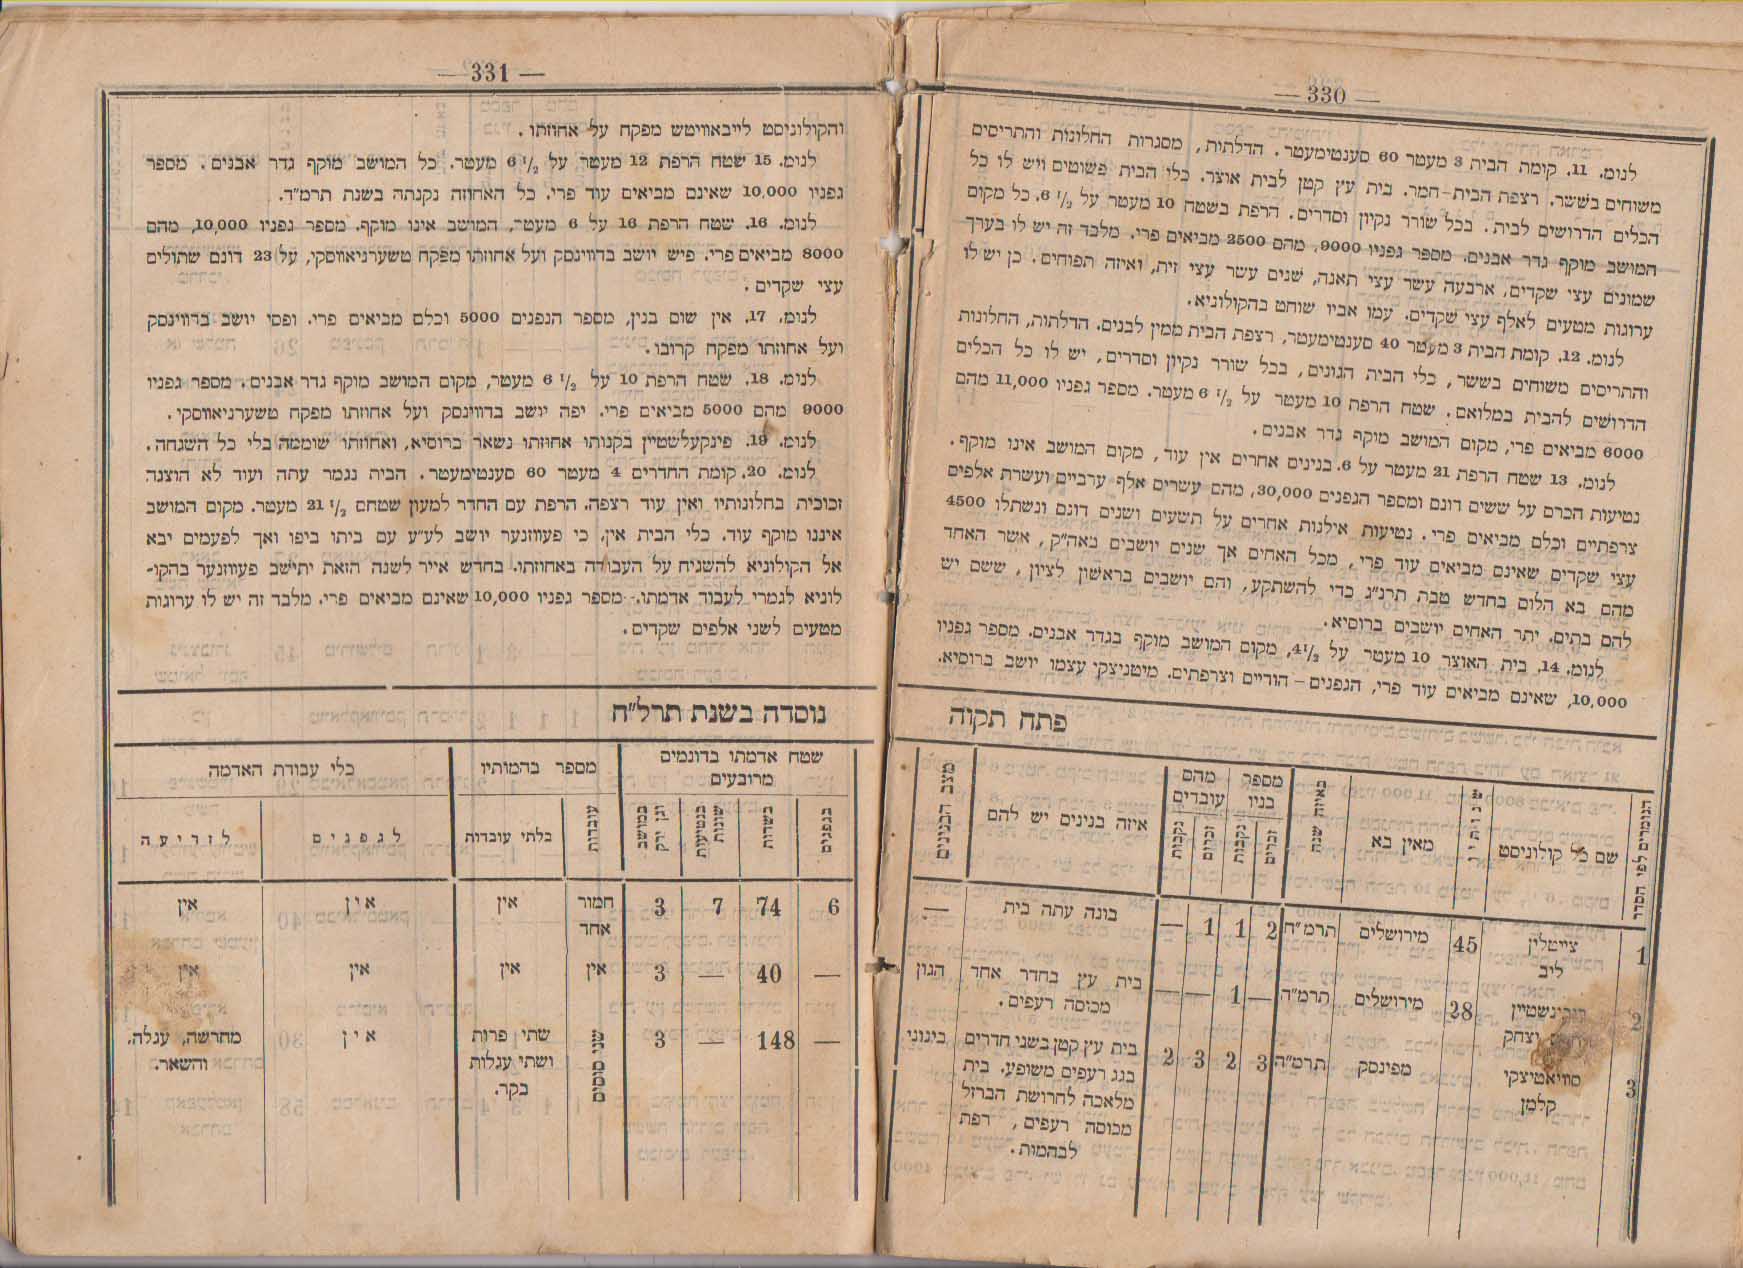 — 330 —
לנומ. 11. קומת הבית 3 מעטר 60 סענטימעטר. הדלתות, מסגרות החלונות והתריסים
משוחים בששר. רצפת הבית-חמר. בית עץ קטן לבית אוצר. כלי הבית פשוטים ויש לו כל
הכלים הדרושים לבית. בכל שורר נקיון וסדרים. הרפת בשטח 10 מעטר על 6 1/2. כל מקום
המושב מוקף גדר אבנים. מספר גפניו 9000, מהם 2500 מביאים פרי. מלבד זה יש לו בערך
שמונים עצי שקדים, ארבעה עשר עצי תאנה, שנים עשר עצי זית, ואיזה תפוחים. כן יש לו
ערוגות מטעים לאלף עצי שקדים. עמו אביו שוחט בהקולוניא.
לנומ. 12. קומת הבית 3 מעטר 40 סענטימעטר, רצפת הבית ממין לבנים. הדלתות, החלונות
והתריסים משוחים בששר, כלי הבית הגונים, בכל שורר נקיון וסדרים, יש לו כל הכלים
הדרושים להבית במלואם. שטח הרפת 10 מעטר על 6 1/2 מעטר. מספר גפניו 11,000 מהם
6000 מביאים פרי, מקום המושב מוקף גדר אבנים.
לנומ. 13 שטח הרפת 21 מעטר על 6. בנינים אחרים אין עוד, מקום המושב אינו מוקף.
נטיעות הכרם על ששים דונם ומספר הגפנים 30,000, מהם עשרים אלף ערביים ועשרת אלפים
צרפתיים וכלם מביאים פרי. נטיעות אילנות אחרים על תשעים ושנים דונם ונשתלו 4500
עצי שקדים שאינם מביאים עוד פרי, מכל האחים אך שנים יושבים באה״ק, אשר האחד
מהם בא הלום בחדש טבת תרנ״ג כדי להשתקע, והם יושבים בראשון לציון, ששם יש
להם בתים. יתר האחים יושבים ברוסיא.
לנומ. 14. בית האוצר 10 מעטר על 4 1/2, מקום המושב מוקף בגדר אבנים. מספר גפניו
10,000, שאינם מביאים עוד פרי, הגפנים – הודיים וצרפתים. מיטניצקי עצמו יושב ברוסיא.
פתח תקוה
הנומרים לפי הסדר
שם כל קולוניסט
שנותיו
מאין בא
באיזה שנה
מספר בניו
זכרים
נקבות
מהם עובדים
זכרים
נקבות
איזה בנינים יש להם
מצב הבנינים
1 צייטלין 45 מירושלים תרמ״ח 2 1 1 — בונה עתה בית —
ליב
2 28 מירושלים תרמ״ה — 1 — — בית עץ בחדר אחד הגון
יצחק מכוסה רעפים.
3 סוויאטיצקי מפינסק תרמ״ה 3 2 3 2 בית עץ קטן בשני חדרים בינוני
קלמן בגג רעפים משופע. בית
מלאכה לחרושת הברזל
מכוסה רעפים, רפת
לבהמות.
— 331 —
והקולוניסט לייבאוויטש מפקח על אחוזתו.
לנומ. 15 שטח הרפת 12 מעטר על 6 1/2 מעטר. כל המושב מוקף גדר אבנים. מספר
גפניו 10,000 שאינם מביאים עוד פרי. כל האחוזה נקנתה בשנת תרמ״ד.
לנומ. 16. שטח הרפת 16 על 6 מעטר, המושב אינו מוקף. מספר גפניו 10,000, מהם
8000 מביאים פרי. פיש יושב בדווינסק ועל אחוזתו מפקח טשערניאווסקי, על 23 דונם שתולים
עצי שקדים.
לנומ. 17. אין שום בנין, מספר הגפנים 5000 וכלם מביאים פרי. ופסי יושב בדווינסק
ועל אחוזתו מפקח קרובו.
לנומ. 18. שטח הרפת 10 על 6 1/2 מעטר, מקום המושב מוקף גדר אבנים. מספר גפניו
9000 מהם 5000 מביאים פרי. יפה יושב בדווינסק ועל אחוזתו מפקח טשערניאווסקי.
לנומ. 19. פינקעלשטיין בקנותו אחוזתו נשאר ברוסיא, ואחוזתו שוממה בלי כל השגחה.
לנומ. 20. קומת החדרים 4 מעטר 60 סענטימעטר. הבית נגמר עתה ועוד לא הוצגה
זכוכית בחלונותיו ואין עוד רצפה. הרפת עם החדר למעון שטחם 21 1/2 מעטר. מקום המושב
איננו מוקף עוד. כלי הבית אין, כי פעווזנער יושב לע״ע עם ביתו ביפו ואך לפעמים יבא
אל הקולוניא להשגיח על העבודה באחוזתו. בחדש אייר לשנה הזאת יתישב פעווזנער בהקו-
לוניא לגמרי לעבוד אדמתו. מספר גפניו 10,000 שאינם מביאים פרי. מלבד זה יש לו ערוגות
מטעים לשני אלפים שקדים.
נוסדה בשנת תרל״ח
שטח אדמתו בדונמים מרובעים
בגפנים
בשדות
בנטיעות שונות
הגן ירק במושב
מספר בהמותיו
עובדות
בלתי עובדות
כלי עבודת האדמה
לגפנים
לזריעה
6 74 7 3 חמור אין אין אין
אחד
— 40 — 3 אין אין אין אין
— 148 — 3 שני סוסים שתי פרות אין מחרשה, עגלה,
ושתי עגלות והשאר.
בקר.